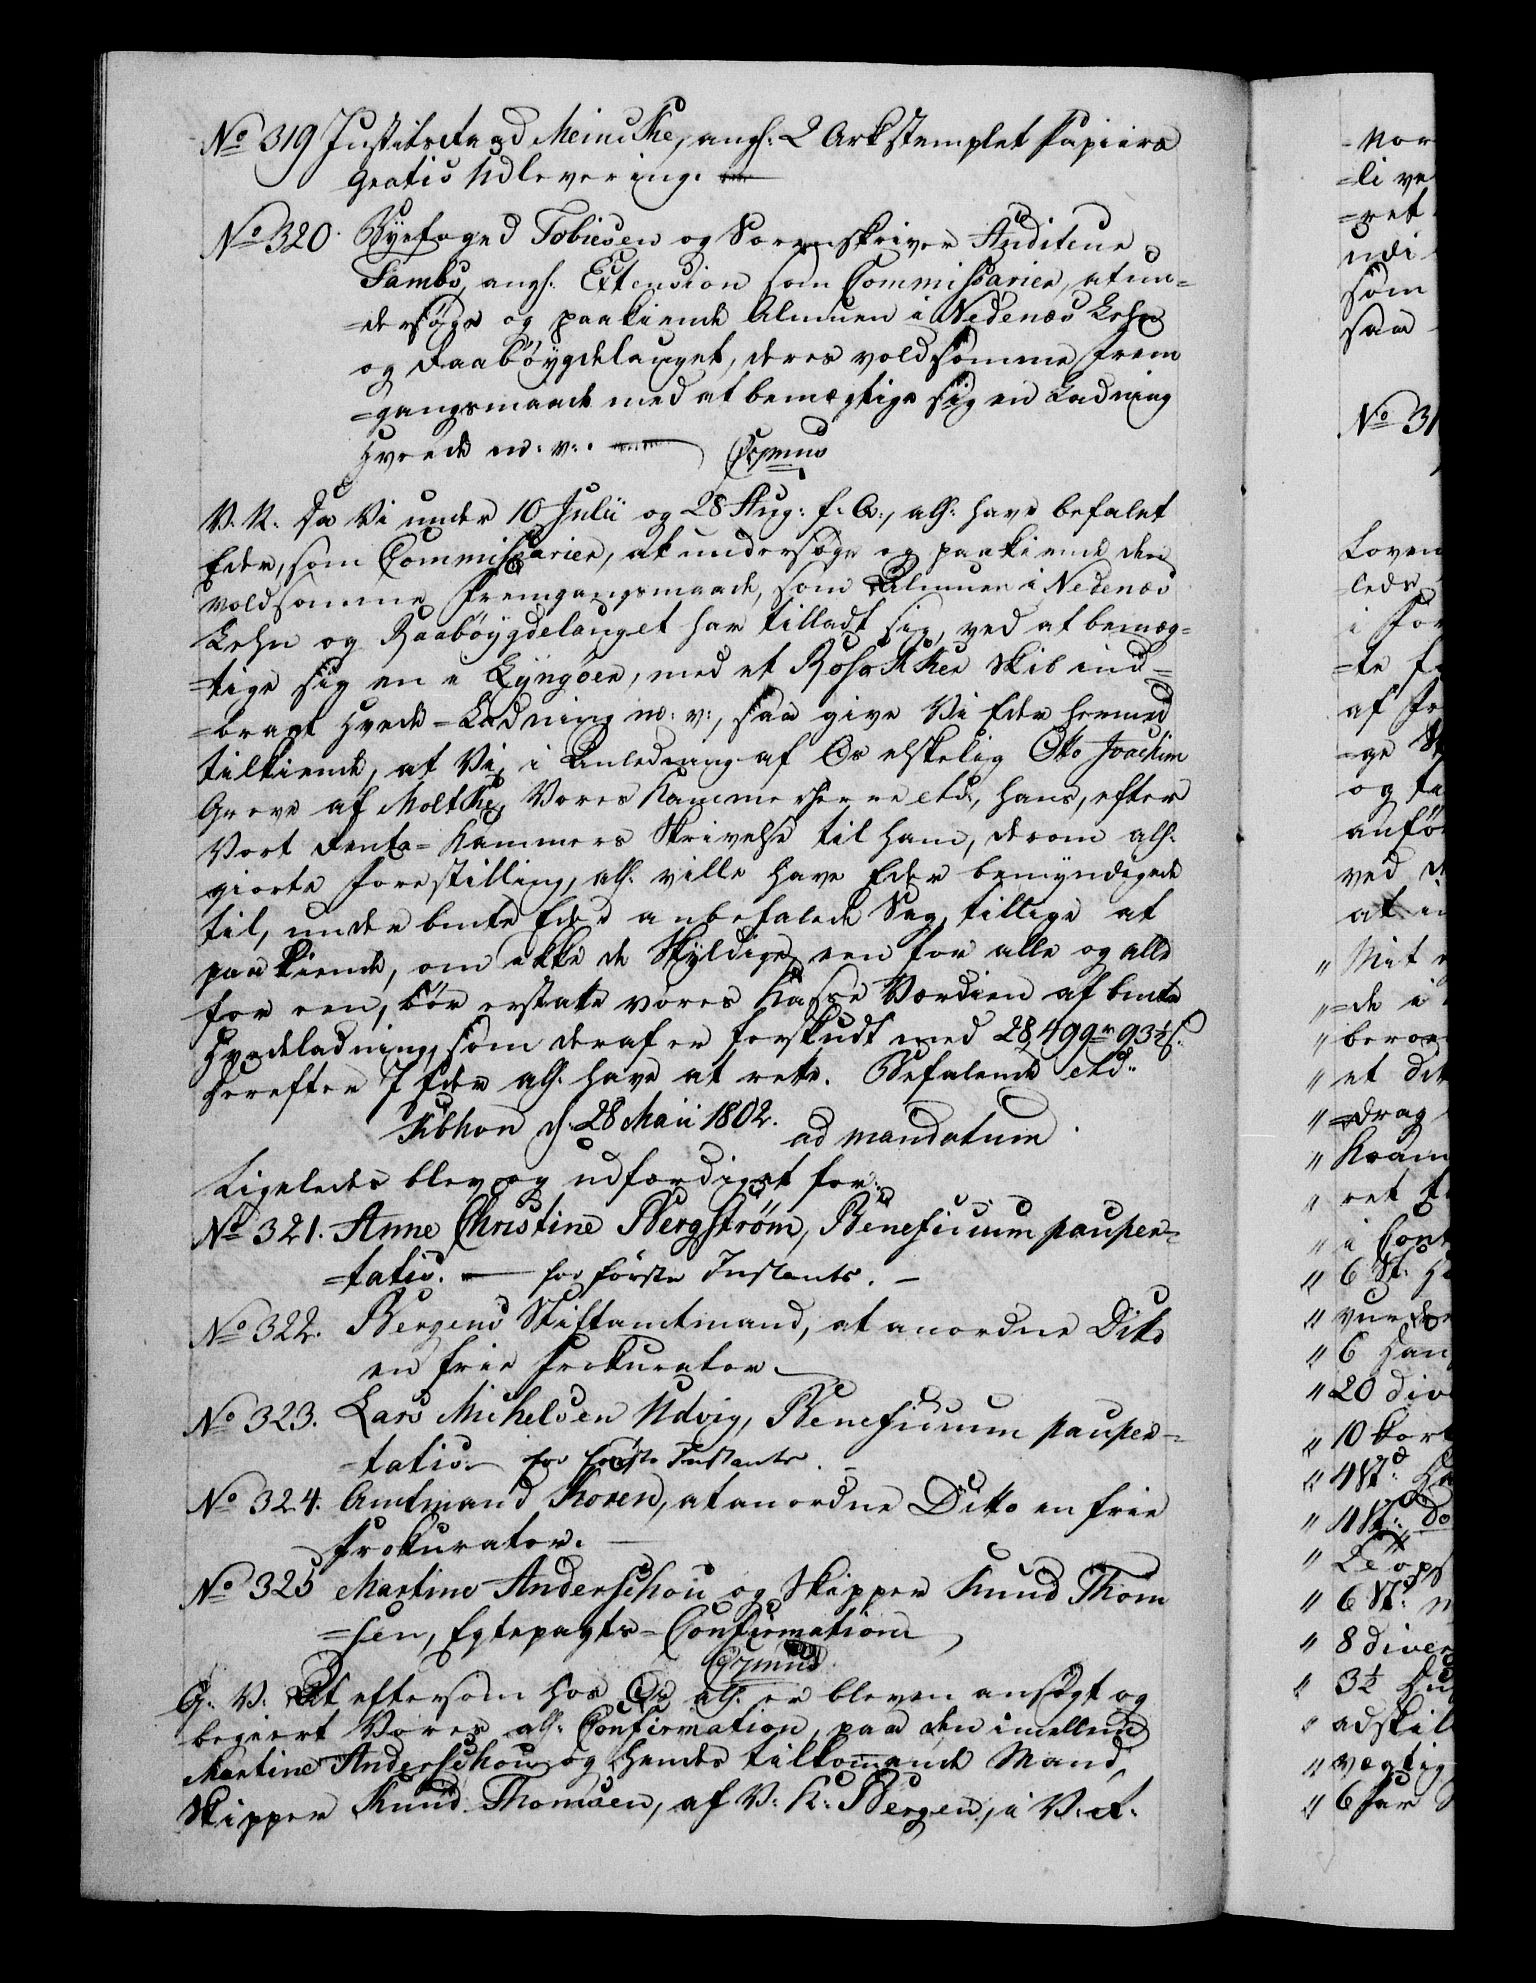 No 319 Justitsraad Meincke, angh: 2 Ark stemplet Papiirs
gratis Udlevering.
No 320. Byefoged Tobiesen og Sorenskriver Auditeur
Fambs, angh. Extension som Commissarier, at un-
=dersøge og paakiende Almuen i Nedenæs Lehn
og Raabøygdelauget, deres voldsomme Frem
=gangsmaade med at bemægtige sig en Ladning
Hvede m: v:.
V. K. Da Vi under 10 Julii og 28 Aug: f: A:, allh. have befalet
Eder, som Commissarier, at undersøge og paakiende den
voldsomme Fremgangsmaade, som Almuen i Nedenæs
Lehn og Raabøygdelauget har tilladt sig, ved at bemæg-
=tige sig en i Lyngøer, med et Rostokker Skib ind-
=bragt Hvede-Ladning m: v:, saa give Vi Eder hermed
tilkiende, at Vi, i Anledning af Os elskelig Otto Joachim
Greve af Moltke, Vores Kammerherre etc:, hans, efter
Vort Rente-Kammers Skrivelse til ham, derom allh.
giorte Forestilling, allh. ville have Eder bemyndiget
til, under bmte Eder anbefalede Sag, tillige at
paakiende, om ikke de Skyldige, een for alle og alle
for een, bør erstatte vores Kasse Værdien af bmte
Hvedeladning, som deraf er forskudt med 28,499 r 93½ s.
Herefter I Eder allh. have at rette. Befalende etc:
Kbhvn d. 28 Maii 1802. ad mandatum.
Ligeledes blev og udfærdiget for:
No 321. Anne Christine Bergstrøm, Beneficium pauper-
=tatis. — for første Instants. —
No 322. Bergens Stiftamtmand, at anordne Dito
en frie Prokurator.
No 323. Lars Michelsen Udvig, Beneficium pauper-
=tatis. for første Instants. —
No 324. Amtmand Koren, at anordne Ditto en frie
Prokurator. —
No 325 Martine Anderschou og Skipper Knud Thom
=sen, Egtepagts-Confirmation
G: V: At eftersom hos Os allh. er bleven ansøgt og
begiert Vores allh: Confirmation, paa den imellem
Martine Anderschou og hendes tilkommende Mand,
Skipper Knud Thomsen, af V: K: Bergen, i V: R:
No 31
Loven
=leds
i For
=te f
af
og
anfør
ved
at
" Mit
" =de i
" beroe
" et div
" =drag
" Kram
" ret
" i Cont
" 6 St:
" 6
" 20 div
" 10 kort
" 4 St:
" 4 St: do
" 6 St:
" 8 diver
" 3½
" adskil
" vægtig
" 6 Par